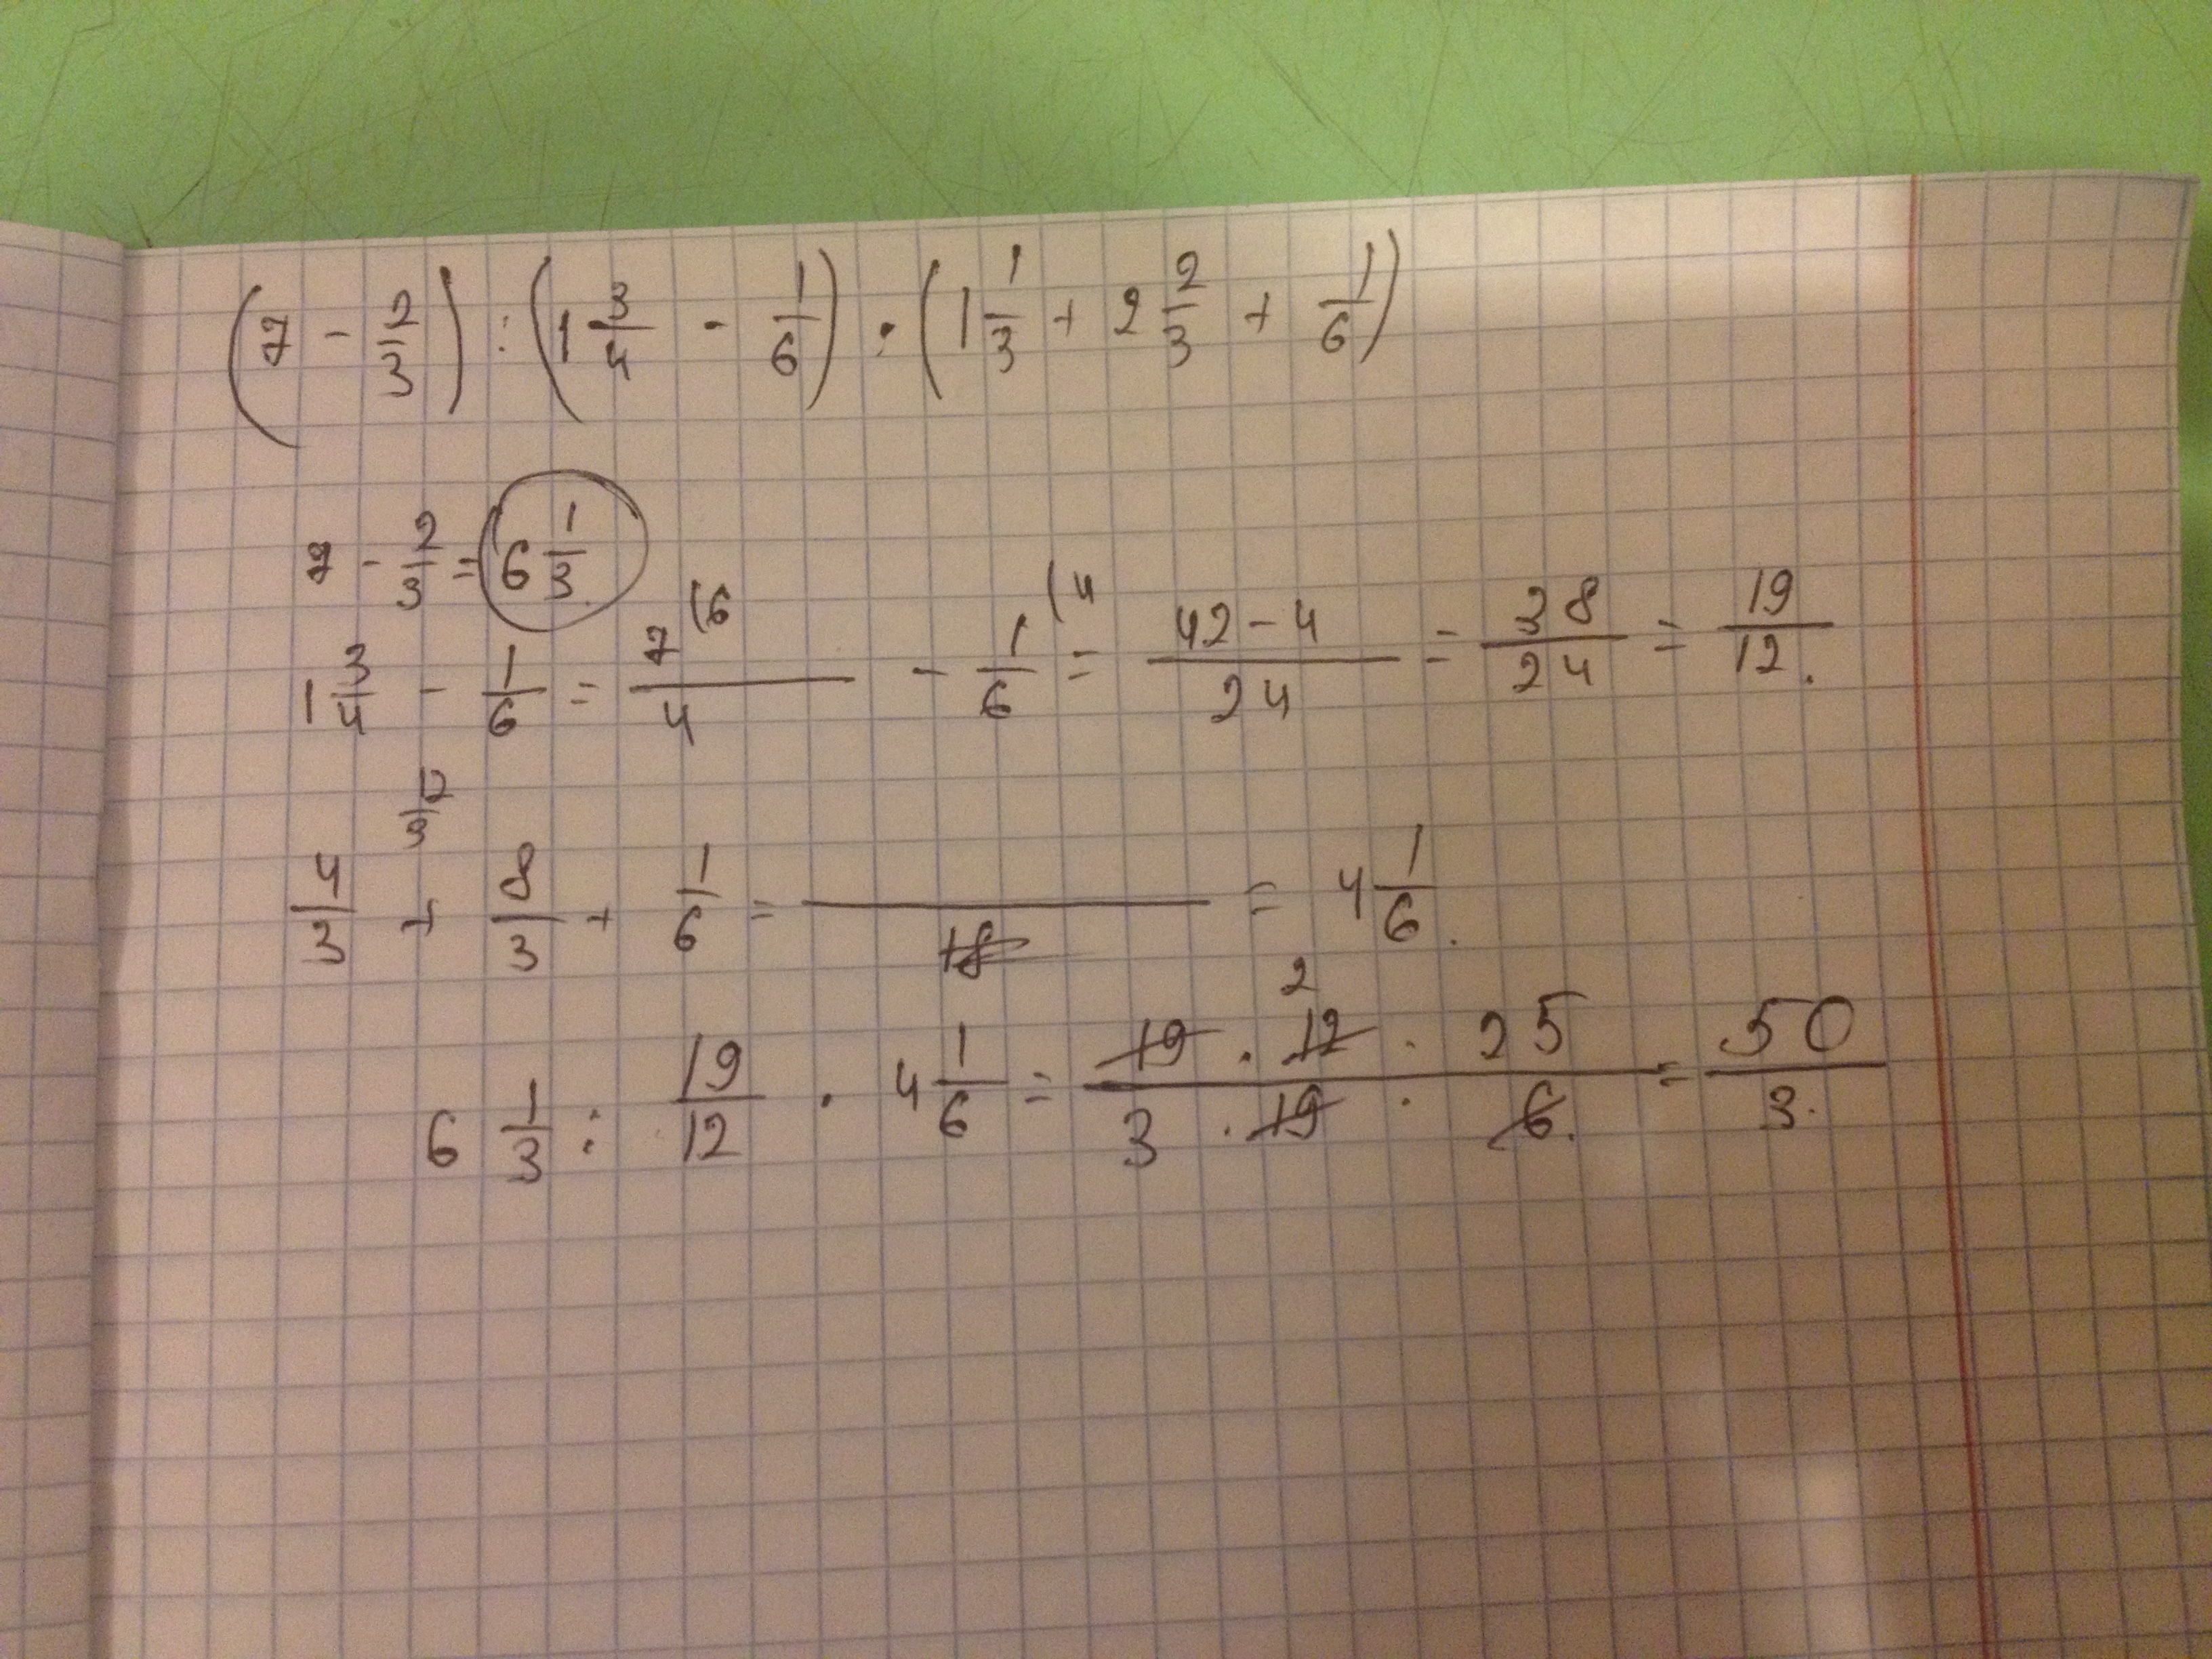 (7 - 2/3) : (1 3/4 - 1/6) · (1 1/3 + 2 2/3 + 1/6)
7 - 2/3 = 6 1/3
1 3/4 - 1/6 = 7/4 (6 - 1/6 (4 = 42-4/24 = 28/24 = 19/12.
12/3
4/3 + 8/3 + 1/6 = /18 = 4 1/6.
2
6 1/3 : 19/12 · 4 1/6 = 19 · 12 · 25/3 · 19 · 6. = 50/3.